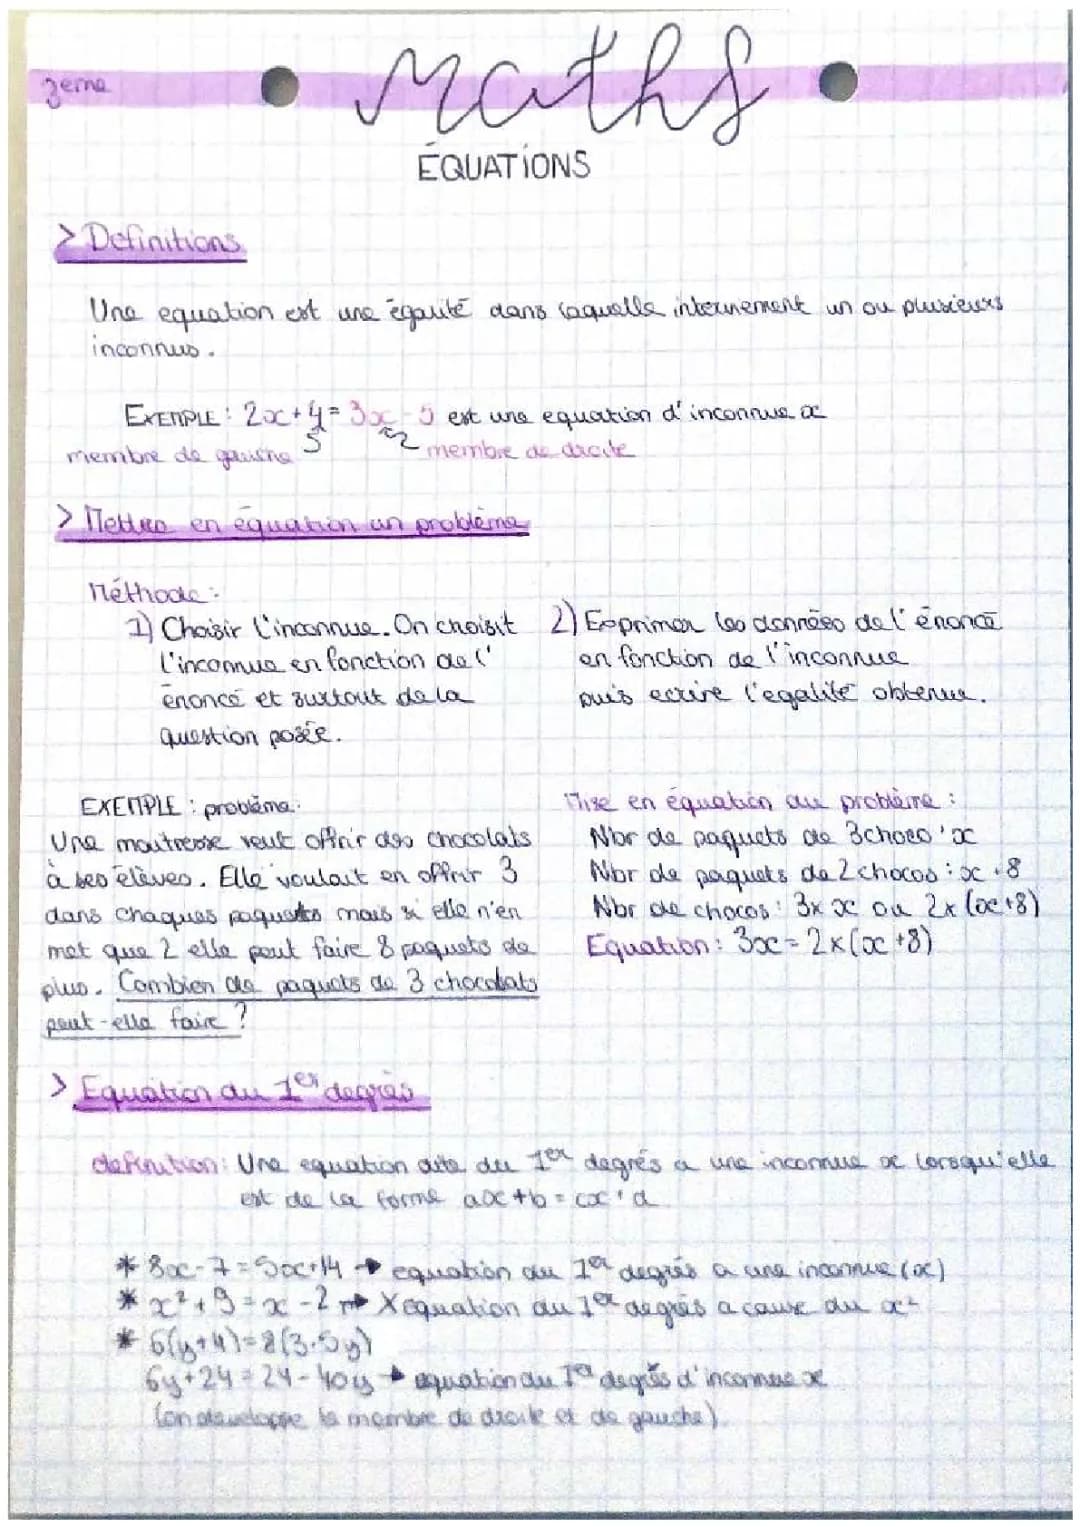 3eme
Maths
ÉQUATIONS
> Definitions
Une equation est une égalité dans laquelle interviennent un ou plusieurs
inconnus.
EXEMPLE : 2x+4=3x-5 est une equation d'inconnue x
membre de gauche
membre de droite
> Mettre en équation un problème
Méthode :
1) Choisir l'inconnue. On choisit
l'inconnue en fonction de l'
énoncé et surtout de la
question posée.
2) Exprimer les données de l'énoncé
en fonction de l'inconnue
puis ecrire l'egalité obtenue.
EXEMPLE : problème :
Une maitresse veut offrir des chocolats
à ses élèves. Elle voulait en offrir 3
dans chaques paquets mais si elle n'en
met que 2 elle peut faire 8 paquets de
plus. Combien de paquets de 3 chocolats
peut-elle faire ?
Mise en équation du problème :
Nbr de paquets de 3 choco : x
Nbr de paquets de 2 chocos : x+8
Nbr de chocos : 3x x ou 2x(x+8)
Equation : 3x = 2x(x+8)
> Equation du 1er degrès
definition : Une equation dite du 1er degrés a une inconnue x lorsqu'elle
est de la forme ax+b = cx+d
* 8x-7=5x+14 → equation du 1er degrés a une inconnue (x)
* x²+9=x-2 → X equation du 1er degrés a cause du x²
* 6(y+4)=8(3-5y)
6y+24=24-40y → equation du 1er degrés d'inconnue x
(on developpe le membre de droite et de gauche)